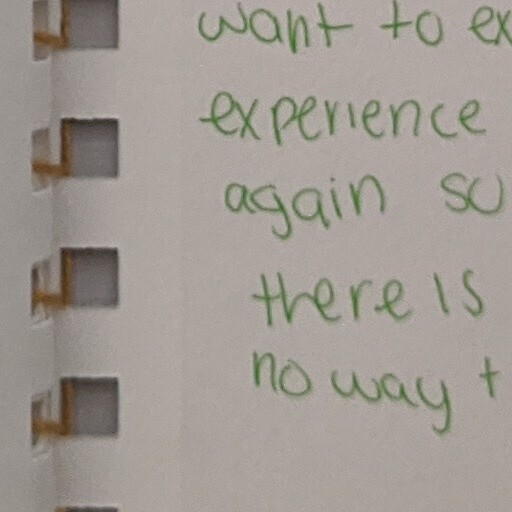 want to ex
experience
again so
there is
no way t